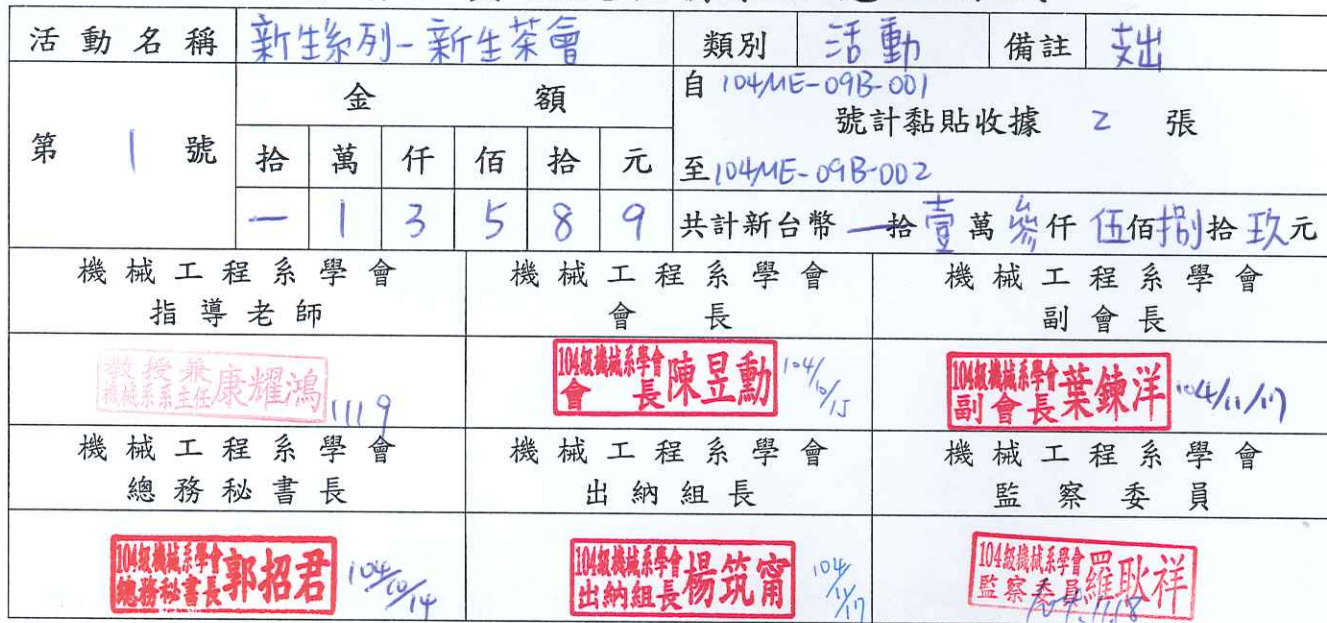 活動名稱 新生系列-新生茶會 類別 活動 備註 支出
第 1 號
金額
拾 萬 仟 佰 拾 元
一 1 3 5 8 9
自 104ME-09B-001
號計黏貼收據 2 張
至 104ME-09B-002
共計新台幣 一拾壹萬參仟伍佰捌拾玖元
機械工程系學會 機械工程系學會 機械工程系學會
指導老師 會長 副會長
教授兼
機械系系主任 康耀鴻 1119
104級機械系學會
會長 陳昱勳 104/10/15
104級機械系學會
副會長 葉鍊洋 104/11/17
機械工程系學會 機械工程系學會 機械工程系學會
總務秘書長 出納組長 監察委員
104級機械系學會
總務秘書長 郭招君 104/10/14
104級機械系學會
出納組長 楊筑甯 104/11/17
104級機械系學會
監察委員 羅耿祥 104.11.18